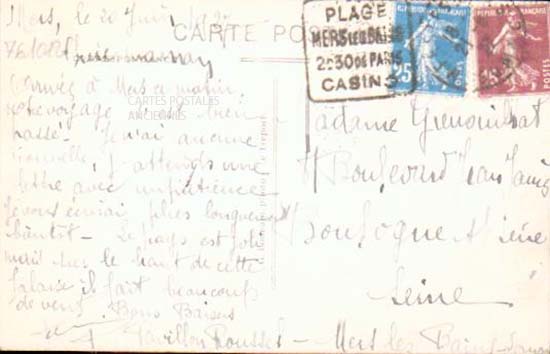 Mers, le 20 Juin
CARTE POSTALE
PLAGE
MERS les BAINS
2H30 DE PARIS
CASINO
Arrivée à Mers ce matin
notre voyage bien
passé. Je n'ai aucune
nouvelle, J'attends une
lettre avec impatience
Je vous écrirai plus longuement
bientôt - Le pays est joli
mais sur le haut de cette
falaise il fait beaucoup
de vent. Bons Baisers
Pavillon Roussel - Mers les Bains
CARTES POSTALES
ANCIENNES
Madame
Boulevard Jean Jaurès
Boulogne s/ Seine
Seine